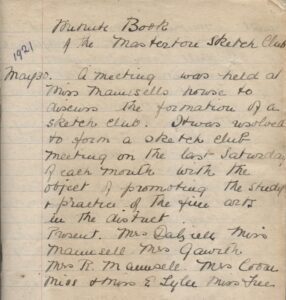 Minute Book
of the Masterton Sketch Club
1921
May 30. A meeting was held at
Miss Maunsells house to
discuss the formation of a
sketch club. It was resolved
to form a sketch club
meeting on the last Saturday
of each month with the
object of promoting the study
& practice of the fine arts
in the district
Present. Mrs Dalziell Miss
Maunsell Mrs Gawith
Mrs R. Maunsell Mrs Coom
Miss & Miss E. Lyle Miss